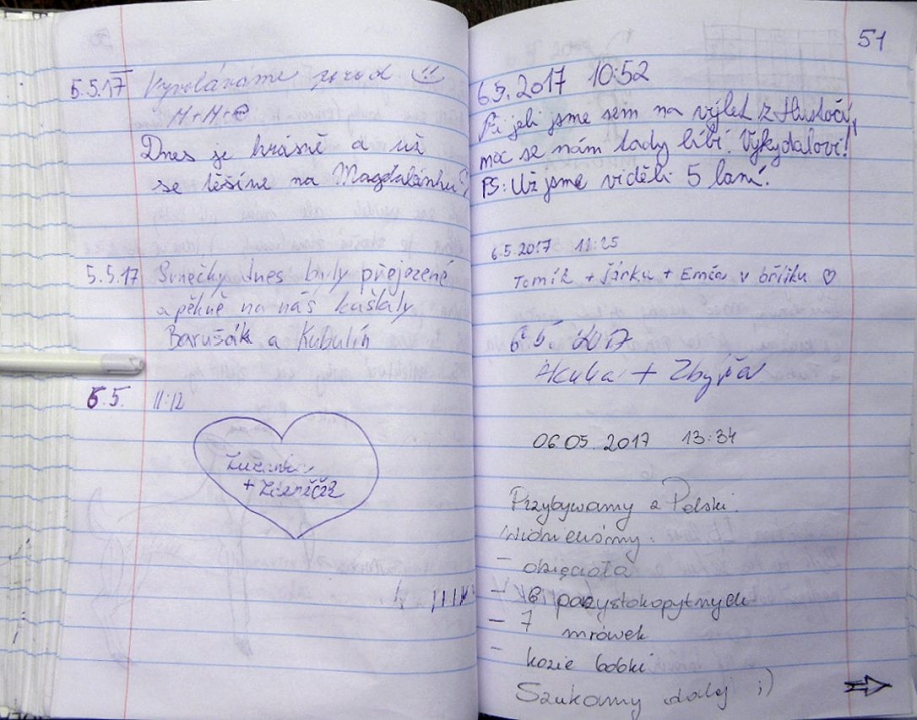 5.5.17 Vyvoláváme zprod
H+H+
Dnes je krásně a už
se těšíme na Magdalénku
5.5.17 Svnečky dnes byly přejozené
a pěkně na nás kašlaly
Barušák a Kubulín
6.5. 11:12
+ Zdeněček
51
6.5.2017 10:52
Při jeli jsme sem na výlet z Hustoče,
moc se nám tady líbí. Vykydalovi!
PS: Už jsme viděli 5 laní.
6.5.2017 11:25
Tomík + Šárka + Emča v bříšku ♡
6.5. 2017
+ Zbyňa
06.05.2017 13:34
Przybywamy z Polski.
Widzieliśmy:
- dzięcioła
- 6 parzystokopytnych
- 7 mrówek
- kozie bobki
Szukamy dalej ;)